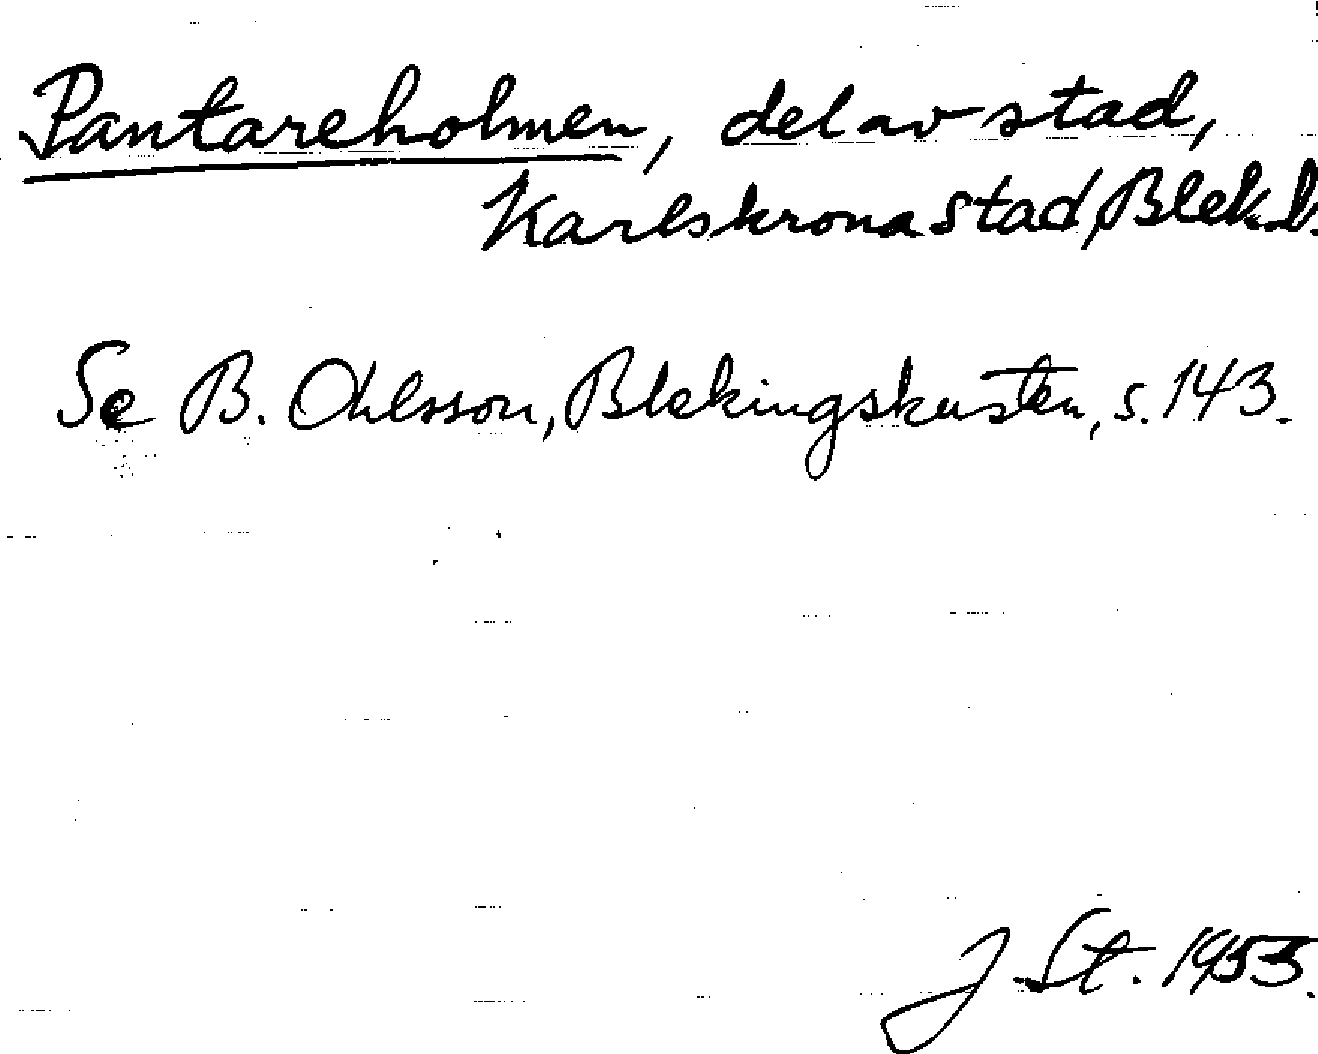 Pantareholmen, del av stad,
Karlskrona stad, Blek. l.
Se B. Ohlsson, Blekingskusten, s. 143.
J. St. 1953.